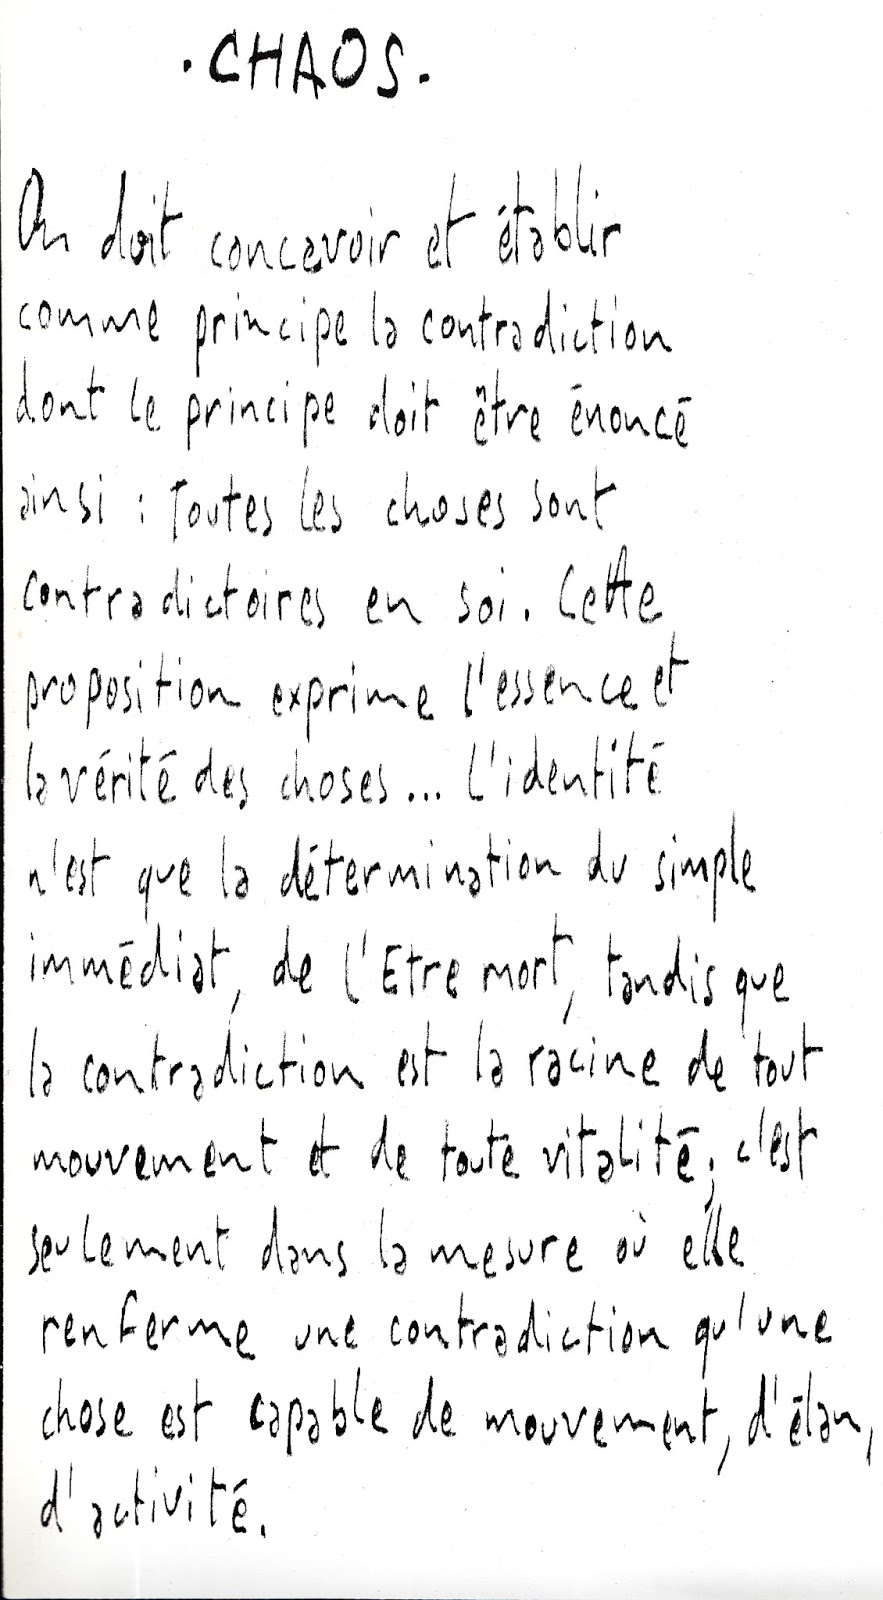 . CHAOS .
On doit concevoir et établir
comme principe la contradiction
dont le principe doit être énoncé
ainsi : Toutes les choses sont
contradictoires en soi. Cette
proposition exprime l'essence et
la vérité des choses... L'identité
n'est que la détermination du simple
immédiat, de l'Etre mort, tandis que
la contradiction est la racine de tout
mouvement et de toute vitalité ; c'est
seulement dans la mesure où elle
renferme une contradiction qu'une
chose est capable de mouvement, d'élan,
d'activité.